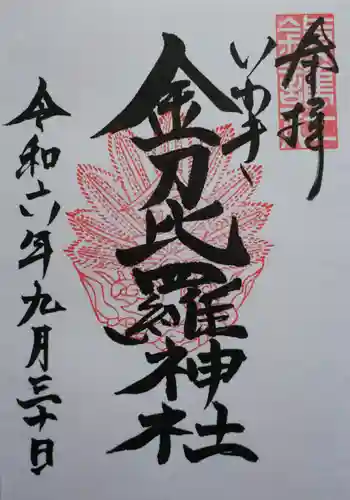 奉拝
いわき
金刀比羅神社
令和六年九月三十日